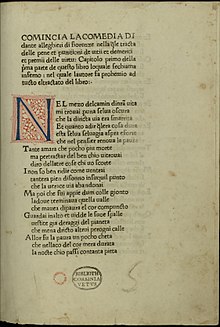 COMINCIA LA COMEDIA DI
dante alleghieri di fiorenze nella q̃le tracta
delle pene et punitioni de uitii et demeriti
et premii delle uirtu: Capitolo primo della
p̃ma parte de questo libro loquale sechiama
inferno: nel quale lautore fa prohemio ad
tucto eltractato del libro:
NEL mezo delcamin dinr̃a uita
mi trouai puna selua oscura
che la diricta uia era smarrita
Et quanto adir q̃lera cosa dura
esta selua seluagia aspra eforte
che nel pensier renoua la paura
Tante amara che pocho piu morte
ma pertractar del ben chio uitrouai
diro dellaltre cose chi uo scorte
I non so ben ridir come uentrai
tantera pien disonno insuquel punto
che la uerace uia abandonai
Ma poi che fui appie dum colle gionto
ladoue terminaua quella ualle
che mauea dipaura el cor compuncto
Guardai inalto et uidde le suoe spalle
uestite gia deraggi del pianeta
che mena dricto altrui perogni calle
Allor fu la paura un pocho cheta
che nellaco del cor mera durata
la nocte chio passai contanta pieta
BIBLIOTH
CORSINIA
VETVS